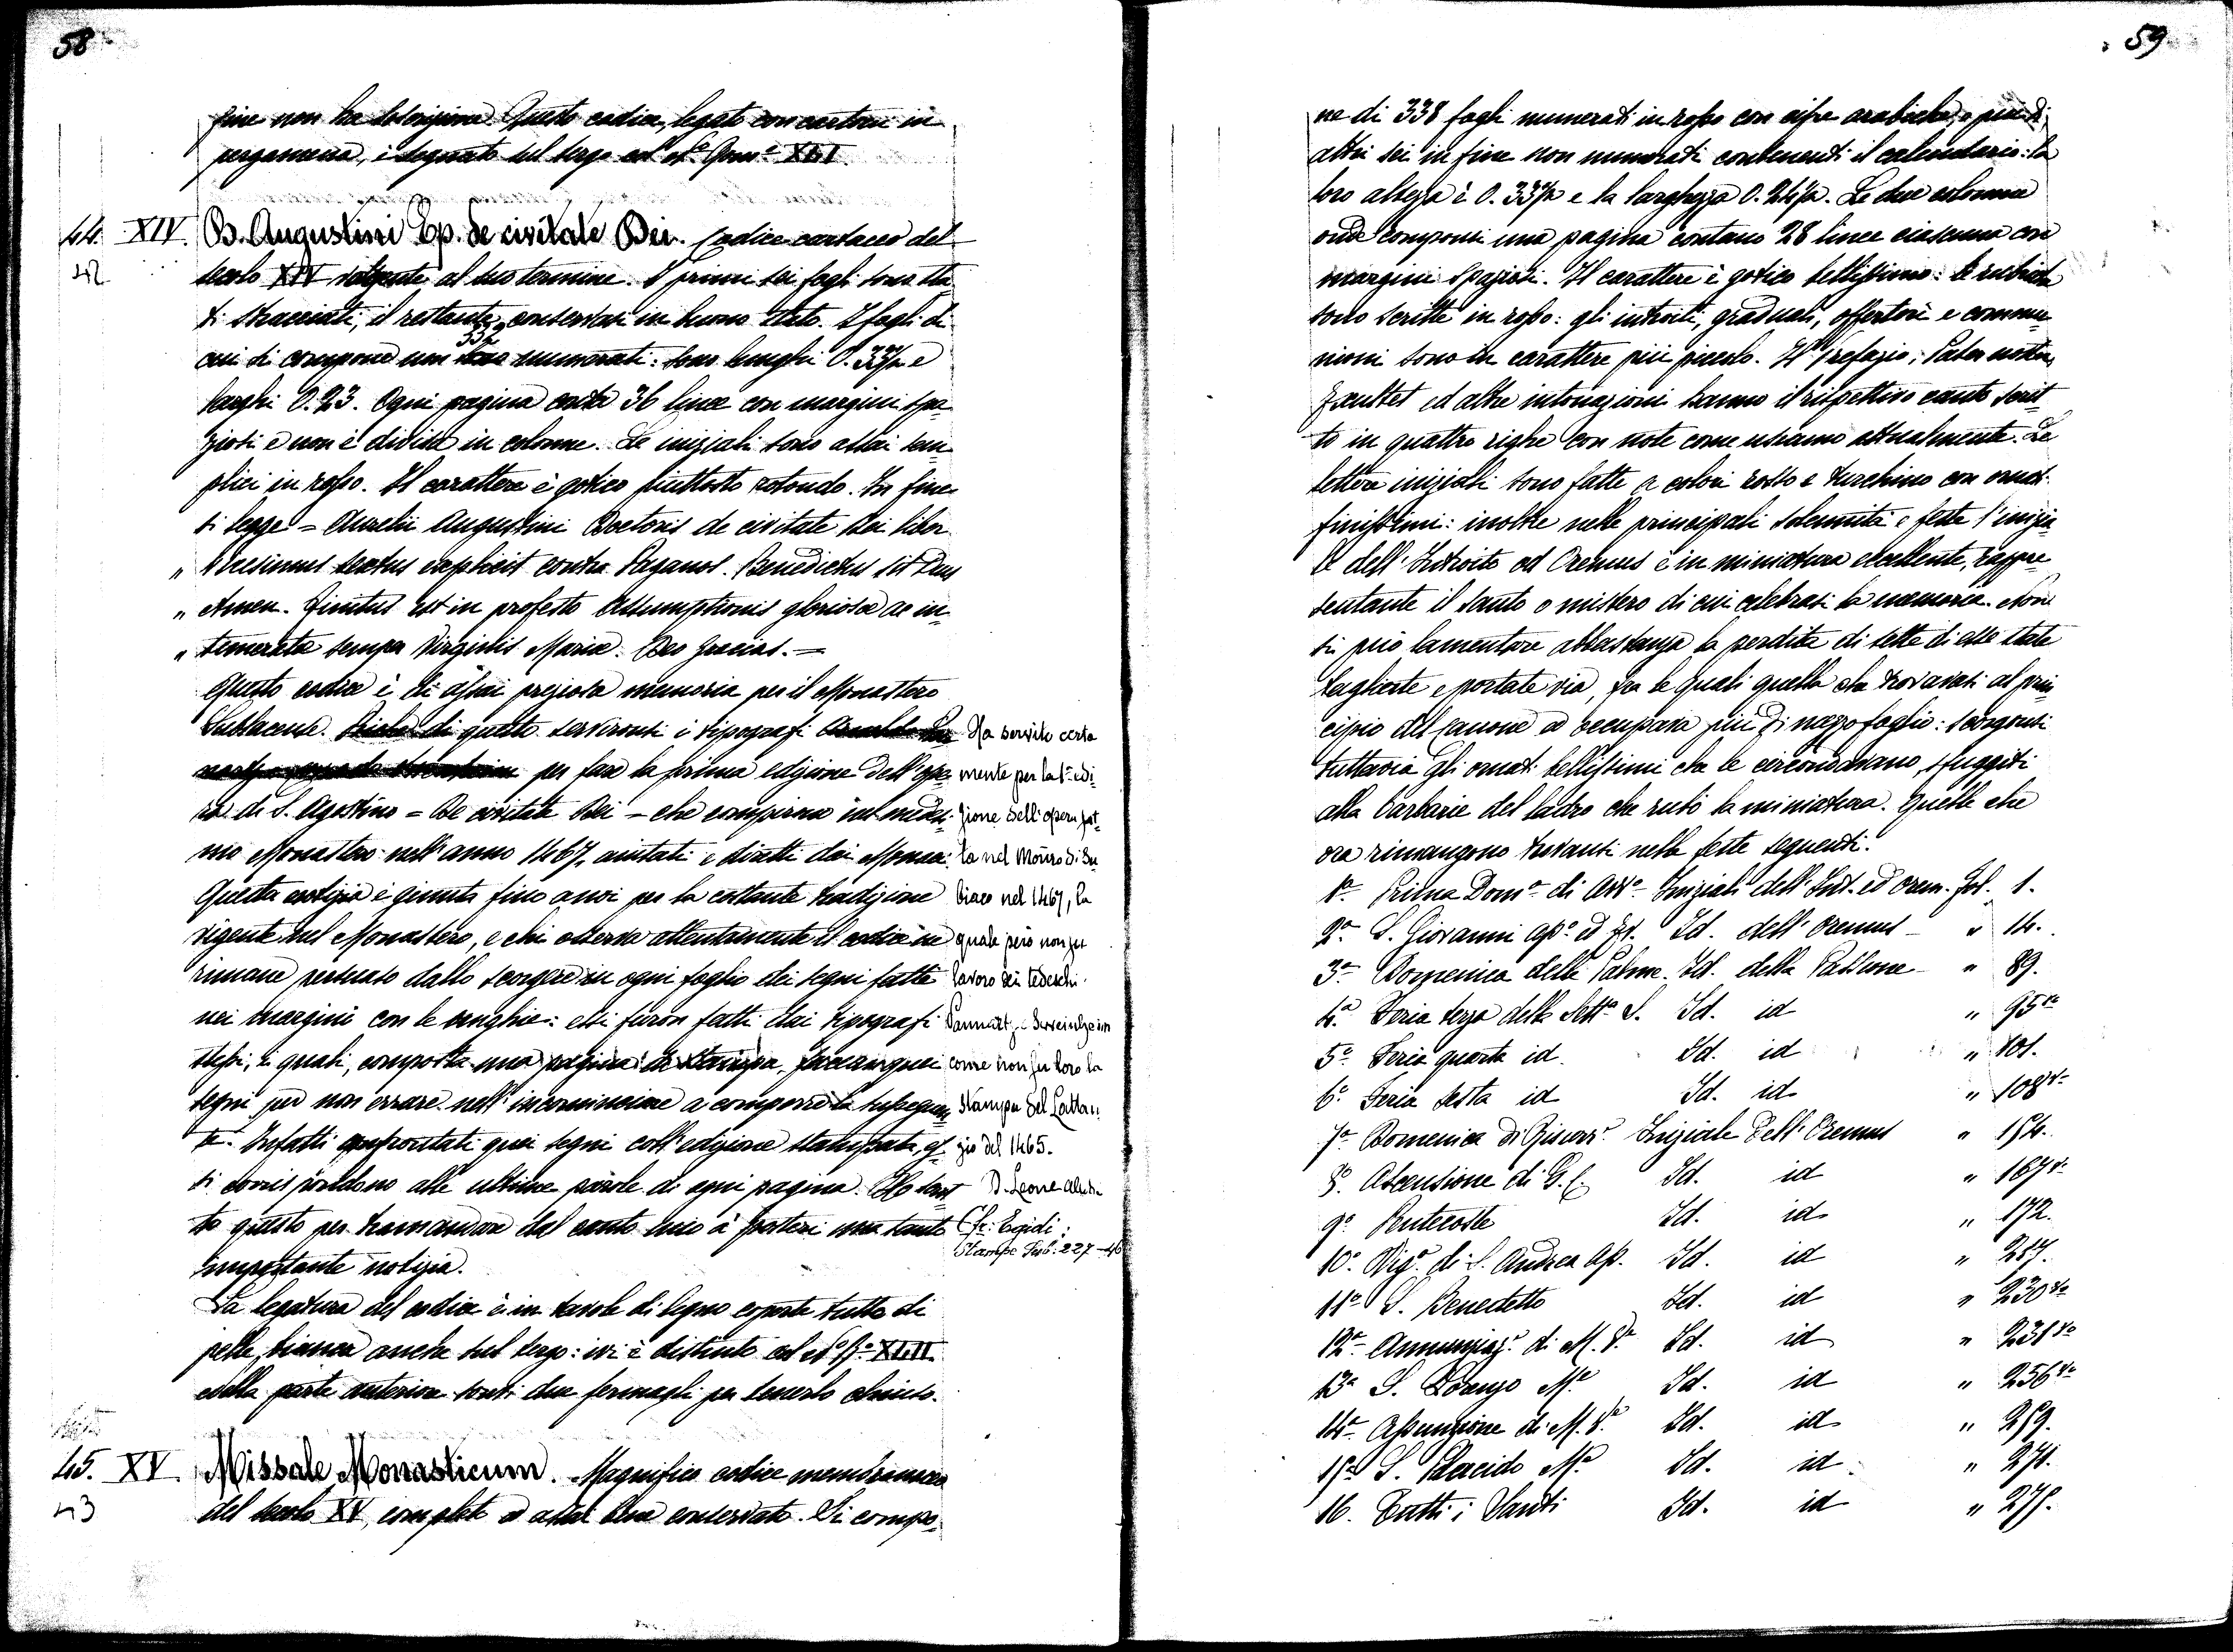 58
fine non ha soscrizione. Questo codice, legato con cartoni in
pergamena, è segnato sul tergo col N.º Rom.º XLI.
44. XIV. B. Augustini Ep. De civitate Dei. Codice cartaceo del
42 secolo XIV volgente al suo termine. I primi sei fogli sono sta-
ti stracciati, il restante conservasi in buono stato. I fogli di
cui si compone non sono numerati: sono lunghi 0.33½ e
larghi 0.23. Ogni pagina conta 36 linee con margini spa-
ziosi e non è divisa in colonne. Le iniziali sono assai sem-
plici in rosso. Il carattere è gotico piuttosto rotondo. In fine
si legge = Aurelii Augustini Doctoris de civitate Dei liber
" Vicesimus sextus explicit contra Paganos. Benedictus sit Deus
" Amen. Finitus est in profesto Assumptionis gloriose ac in-
" temerate semper Virginis Marie. Deo gracias. =
Questo codice è di assai preziosa memoria per il Monastero
Sublacense. di questo servironsi i tipografi
per fare la prima edizione dell'ope-
ra di S. Agostino = De civitate Dei = che compirono nel medesi-
mo Monastero nell'anno 1467, aiutati e diretti dai Monaci.
Questa notizia è giunta fino a noi per la costante tradizione
vigente nel Monastero, e chi osserva attentamente il codice ne
rimane persuaso dallo scorgere in ogni foglio dei segni fatti
nei margini con le unghie: essi furon fatti dai tipografi
stessi, i quali, composta una pagina di stampa, facean quei
segni per non errare nell'incominciare a comporre la susseguen-
te. Infatti confrontati quei segni coll'edizione stampata, es-
si corrispondono alle ultime parole di ogni pagina. Ho scrit-
to questo per tramandare dal canto mio a' posteri una tanto
importante notizia.
La legatura del codice è in tavole di legno coperte tutte di
pelle bianca anche sul tergo: ivi è distinto col N.º R.º XLII.
Nella parte anteriore sonvi due fermagli per tenerlo chiuso.
Ha servito certa
mente per la 1ª edi
zione dell'opera fat-
ta nel Monro di Su
biaco nel 1467, la
quale però non fu
lavoro dei tedeschi
Pannartz e Sweinheim
come non fu loro la
stampa del Lattan
zio del 1465.
D. Leone
Cfr. Egidi:
Stampe Sub. 227-46
45. XV. Missale Monasticum. Magnifico codice membranaceo
43 del secolo XV, completo ed assai bene conservato. Si compo-
59
ne di 338 fogli numerati in rosso con cifre arabiche, e più di
altri sei in fine non numerati contenenti il calendario: la
loro altezza è 0.33½ e la larghezza 0.24½. Le due colonne
onde componsi una pagina contano 28 linee ciascuna con
margini spaziosi. Il carattere è gotico bellissimo: le rubriche
sono scritte in rosso: gli introiti, graduali, offertorî e comu-
nioni sono in carattere più piccolo. Il prefazio, Pater noster,
Exultet ed altre intonazioni hanno il rispettivo canto scrit-
to in quattro righe con note come usiamo attualmente. Le
lettere iniziali sono fatte a colori rosso e turchino con ornati
finissimi: inoltre nelle principali solennità e feste l'inizia-
le dell'Introito od Oremus è in miniatura eccellente, rappre-
sentante il santo o mistero di cui celebrasi la memoria. Non
si può lamentare abbastanza la perdita di sette di esse state
tagliate e portate via, fra le quali quella che trovavasi al prin-
cipio del Canone ed occupava più di mezzo foglio: scorgonsi
tuttavia gli ornati bellissimi che le circondavano, sfuggiti
alla barbarie del ladro che rubò la miniatura. Quelle che
ora rimangono trovansi nelle feste seguenti.
1ª Prima Domª di Avvº Iniziali dell'Int. ed Orem. Fol. 1.
2ª S. Giovanni Apº ed Ev. Id. dell'Oremus - " 14.
3ª Domenica delle Palme. Id. della Passione - " 89.
4ª Feria terza della Settª S. Id. id " 95 vº
5ª Feria quarta id. Id. id " 101.
6ª Feria sesta id Id. id " 108 vº
7ª Domenica di Risurrº Iniziale dell'Oremus " 154.
8ª Ascensione di G. C. Id. id " 167 vº
9ª Pentecoste Id. id " 172.
10ª Vigª di S. Andrea Ap. Id. id " 217.
11ª S. Benedetto Id. id " 230 vº
12ª Annunziazº di M. Vº Id. id " 231 vº
13ª S. Lorenzo Mº Id. id " 256 vº
14ª Assunzione di M. Vº Id. id " 259.
15ª S. Placido Mº Id. id " 271.
16. Tutti i Santi Id. id " 275.